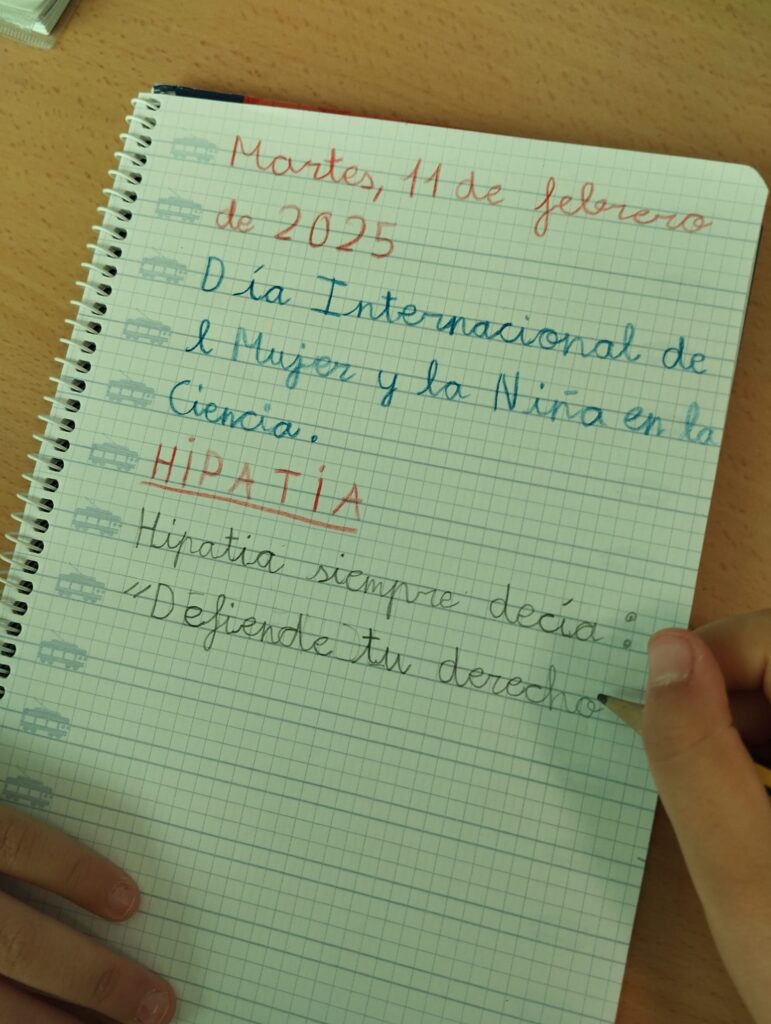 Martes, 11 de febrero
de 2025
Día Internacional de
l Mujer y la Niña en la
Ciencia.
HiPATiA
Hipatia siempre decía:
"Defiende tu derecho